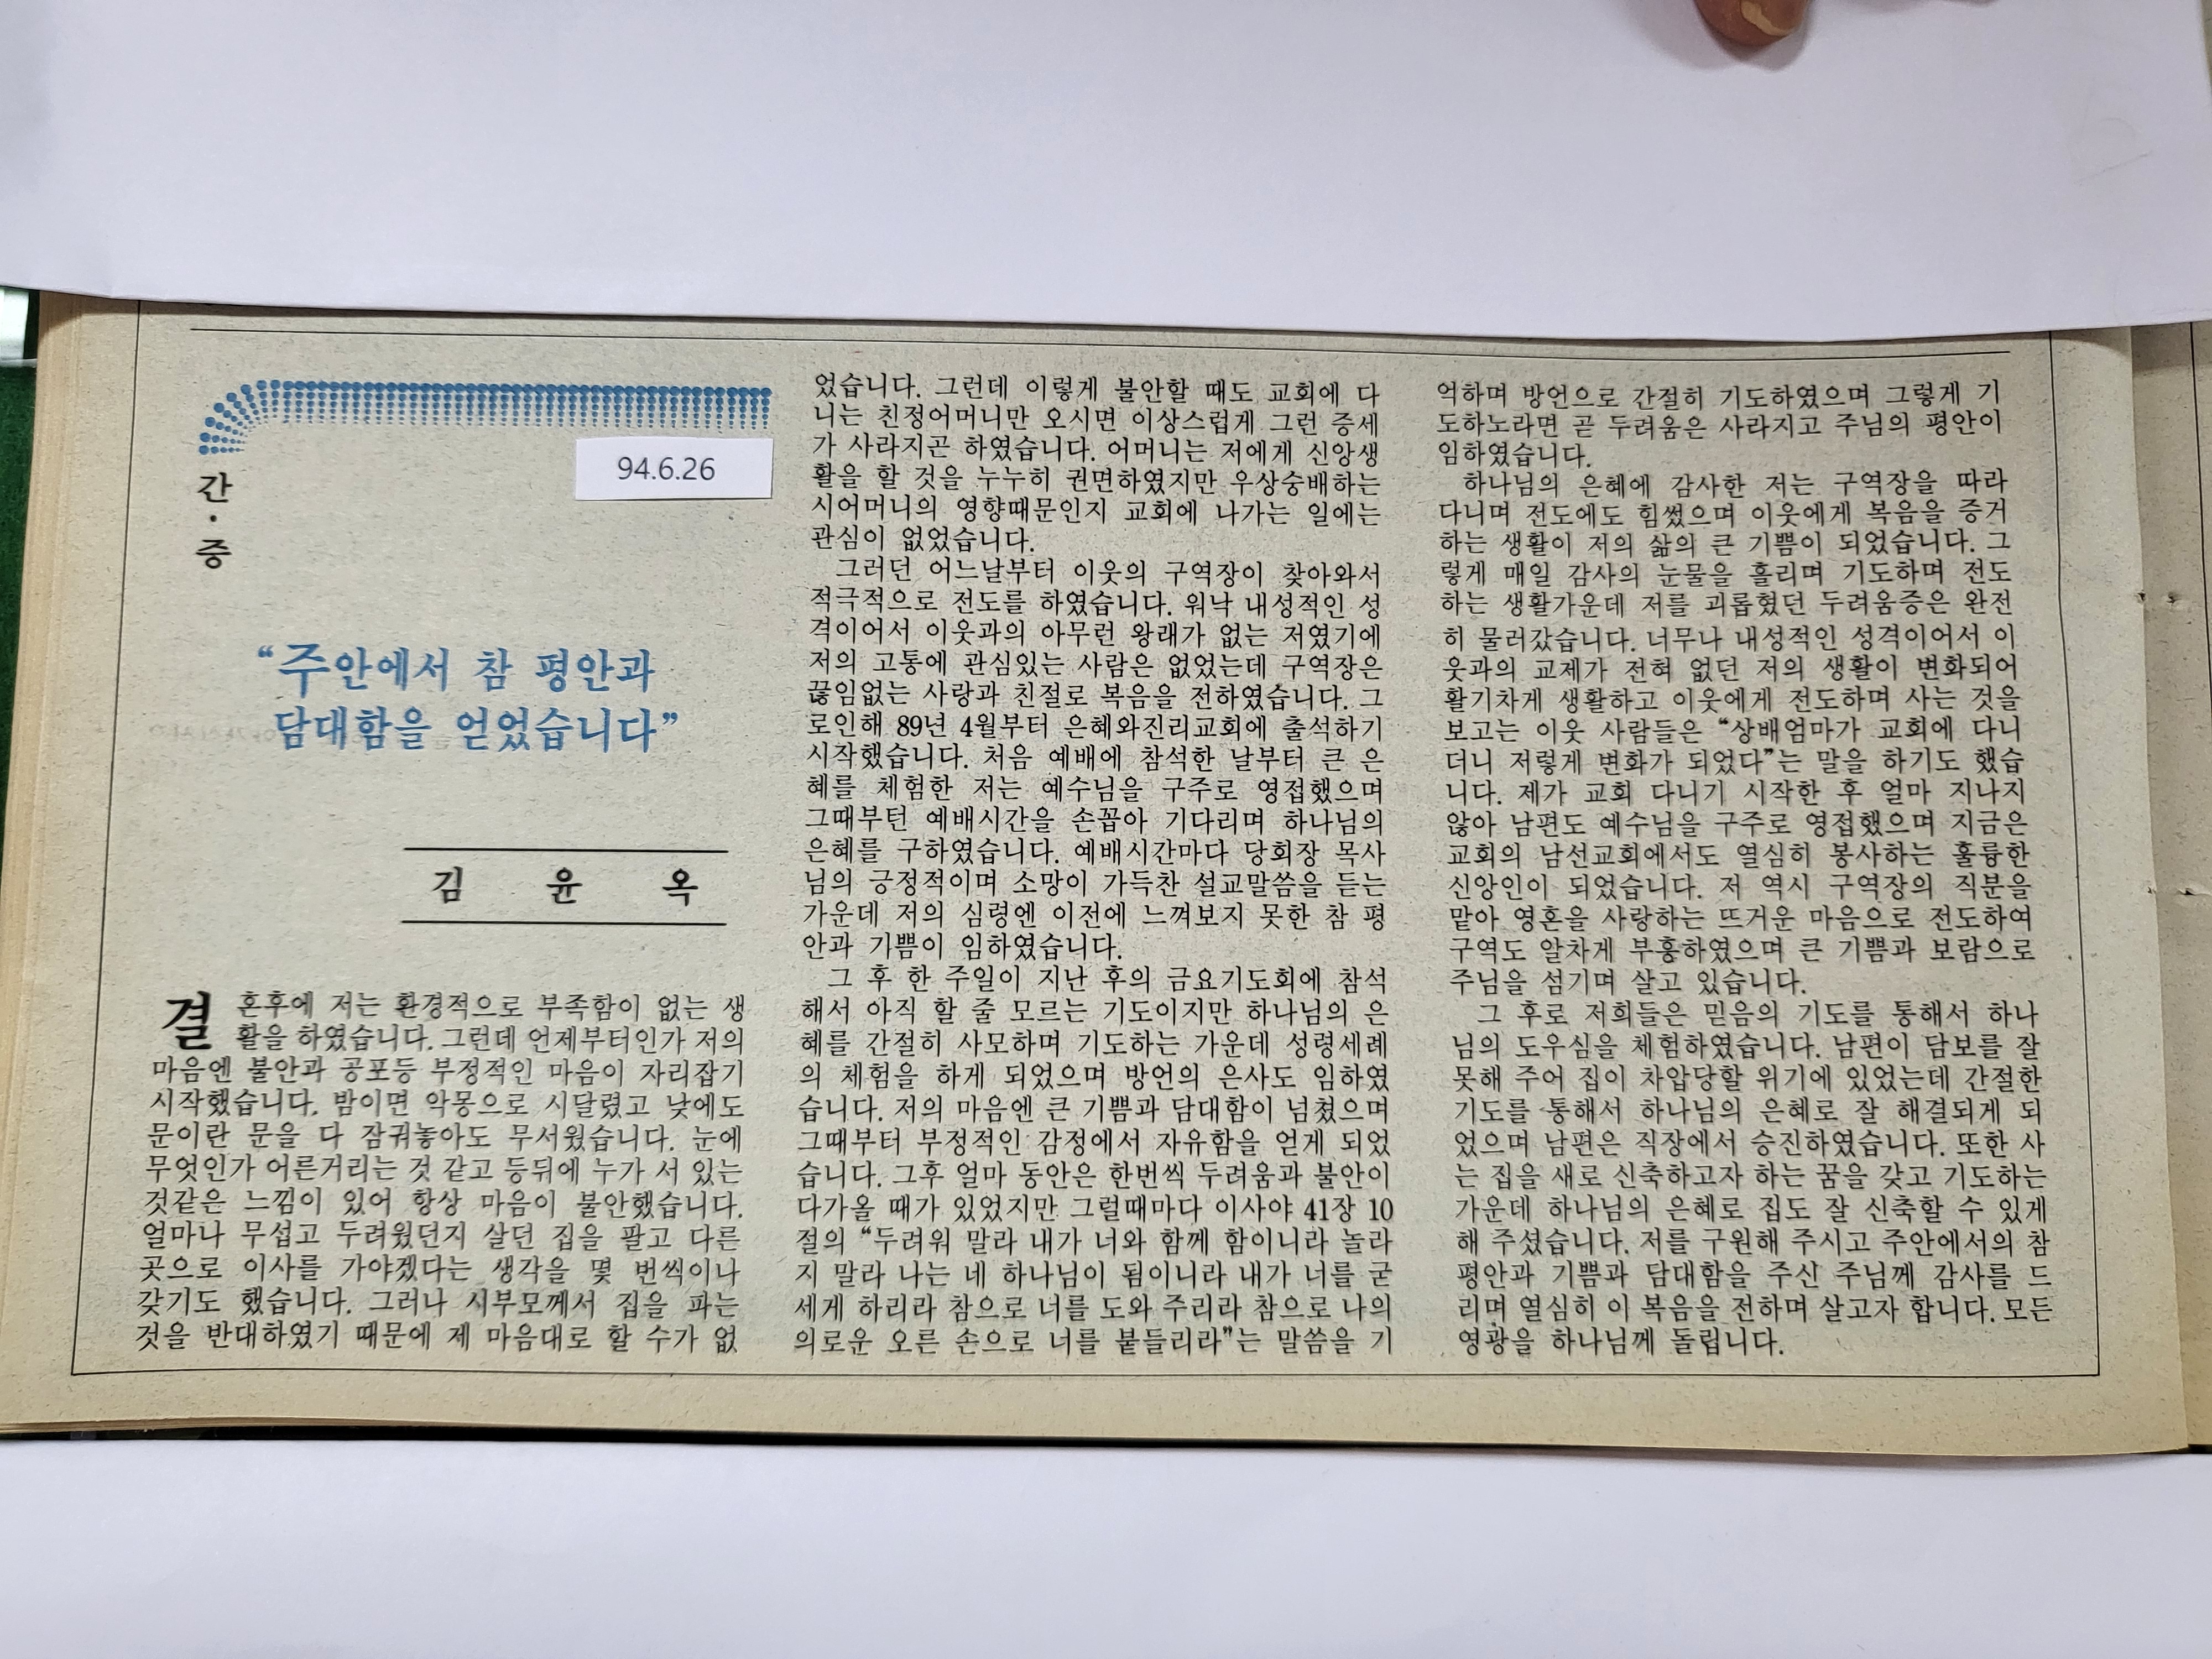 간·증
94.6.26
“주안에서 참 평안과
담대함을 얻었습니다”
김 윤 옥
결혼후에 저는 환경적으로 부족함이 없는 생
활을 하였습니다. 그런데 언제부터인가 저의
마음엔 불안과 공포등 부정적인 마음이 자리잡기
시작했습니다. 밤이면 악몽으로 시달렸고 낮에도
문이란 문을 다 잠궈놓아도 무서웠습니다. 눈에
무엇인가 어른거리는 것 같고 등뒤에 누가 서 있는
것같은 느낌이 있어 항상 마음이 불안했습니다.
얼마나 무섭고 두려웠던지 살던 집을 팔고 다른
곳으로 이사를 가야겠다는 생각을 몇 번씩이나
갖기도 했습니다. 그러나 시부모께서 집을 파는
것을 반대하였기 때문에 제 마음대로 할 수가 없
었습니다. 그런데 이렇게 불안할 때도 교회에 다
니는 친정어머니만 오시면 이상스럽게 그런 증세
가 사라지곤 하였습니다. 어머니는 저에게 신앙생
활을 할 것을 누누히 권면하였지만 우상숭배하는
시어머니의 영향때문인지 교회에 나가는 일에는
관심이 없었습니다.
그러던 어느날부터 이웃의 구역장이 찾아와서
적극적으로 전도를 하였습니다. 워낙 내성적인 성
격이어서 이웃과의 아무런 왕래가 없는 저였기에
저의 고통에 관심있는 사람은 없었는데 구역장은
끊임없는 사랑과 친절로 복음을 전하였습니다. 그
로인해 89년 4월부터 은혜와진리교회에 출석하기
시작했습니다. 처음 예배에 참석한 날부터 큰 은
혜를 체험한 저는 예수님을 구주로 영접했으며
그때부턴 예배시간을 손꼽아 기다리며 하나님의
은혜를 구하였습니다. 예배시간마다 당회장 목사
님의 긍정적이며 소망이 가득찬 설교말씀을 듣는
가운데 저의 심령엔 이전에 느껴보지 못한 참 평
안과 기쁨이 임하였습니다.
그 후 한 주일이 지난 후의 금요기도회에 참석
해서 아직 할 줄 모르는 기도이지만 하나님의 은
혜를 간절히 사모하며 기도하는 가운데 성령세례
의 체험을 하게 되었으며 방언의 은사도 임하였
습니다. 저의 마음엔 큰 기쁨과 담대함이 넘쳤으며
그때부터 부정적인 감정에서 자유함을 얻게 되었
습니다. 그후 얼마 동안은 한번씩 두려움과 불안이
다가올 때가 있었지만 그럴때마다 이사야 41장 10
절의 “두려워 말라 내가 너와 함께 함이니라 놀라
지 말라 나는 네 하나님이 됨이니라 내가 너를 굳
세게 하리라 참으로 너를 도와 주리라 참으로 나의
의로운 오른 손으로 너를 붙들리라”는 말씀을 기
억하며 방언으로 간절히 기도하였으며 그렇게 기
도하노라면 곧 두려움은 사라지고 주님의 평안이
임하였습니다.
하나님의 은혜에 감사한 저는 구역장을 따라
다니며 전도에도 힘썼으며 이웃에게 복음을 증거
하는 생활이 저의 삶의 큰 기쁨이 되었습니다. 그
렇게 매일 감사의 눈물을 흘리며 기도하며 전도
하는 생활가운데 저를 괴롭혔던 두려움증은 완전
히 물러갔습니다. 너무나 내성적인 성격이어서 이
웃과의 교제가 전혀 없던 저의 생활이 변화되어
활기차게 생활하고 이웃에게 전도하며 사는 것을
보고는 이웃 사람들은 “상배엄마가 교회에 다니
더니 저렇게 변화가 되었다”는 말을 하기도 했습
니다. 제가 교회 다니기 시작한 후 얼마 지나지
않아 남편도 예수님을 구주로 영접했으며 지금은
교회의 남선교회에서도 열심히 봉사하는 훌륭한
신앙인이 되었습니다. 저 역시 구역장의 직분을
맡아 영혼을 사랑하는 뜨거운 마음으로 전도하여
구역도 알차게 부흥하였으며 큰 기쁨과 보람으로
주님을 섬기며 살고 있습니다.
그 후로 저희들은 믿음의 기도를 통해서 하나
님의 도우심을 체험하였습니다. 남편이 담보를 잘
못해 주어 집이 차압당할 위기에 있었는데 간절한
기도를 통해서 하나님의 은혜로 잘 해결되게 되
었으며 남편은 직장에서 승진하였습니다. 또한 사
는 집을 새로 신축하고자 하는 꿈을 갖고 기도하는
가운데 하나님의 은혜로 집도 잘 신축할 수 있게
해 주셨습니다. 저를 구원해 주시고 주안에서의 참
평안과 기쁨과 담대함을 주신 주님께 감사를 드
리며 열심히 이 복음을 전하며 살고자 합니다. 모든
영광을 하나님께 돌립니다.